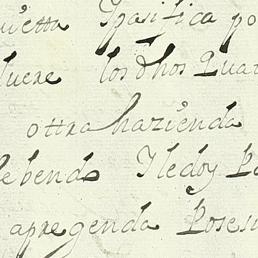 quietta Ypasifica po
tuere los dhos quat
ottra hazienda
debendo Yledoy Po
apregenda Posesi